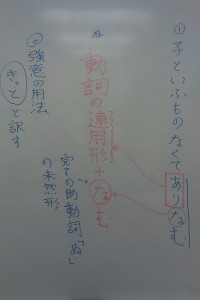 ①子といふものなくてありなむ
ぬ
動詞の連用形+なむ
完了の助動詞「ぬ」
の未然形
②強意の用法
きっとと訳す